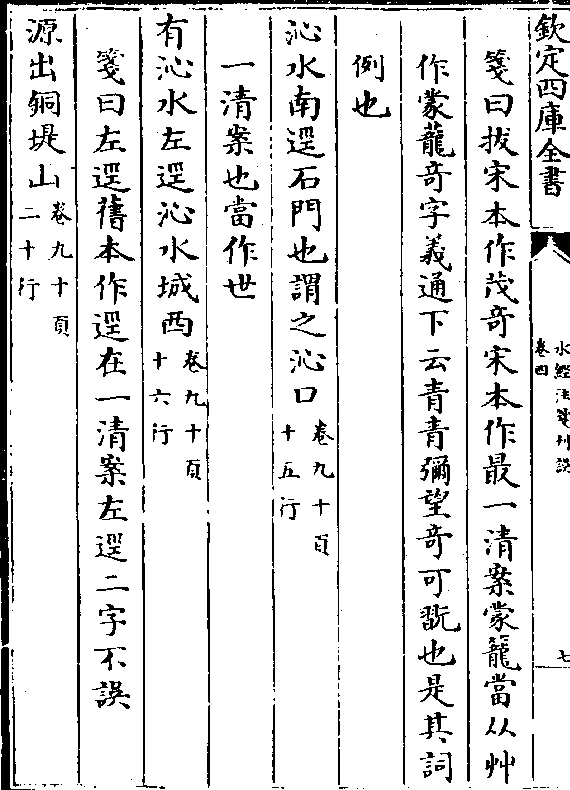 欽定四庫全書
水經注箋刋誤
卷四
七
箋曰拔宋本作茂竒宋本作最一清案蒙籠當从艸
作蒙蘢竒字義通下云青青彌望竒可翫也是其詞
例也
沁水南逕石門也謂之沁口卷九十頁十五行
一清案也當作世
有沁水左逕沁水城西卷九十頁十六行
箋曰左逕舊本作逕在一清案左逕二字不誤
源出銅堤山卷九十頁二十行